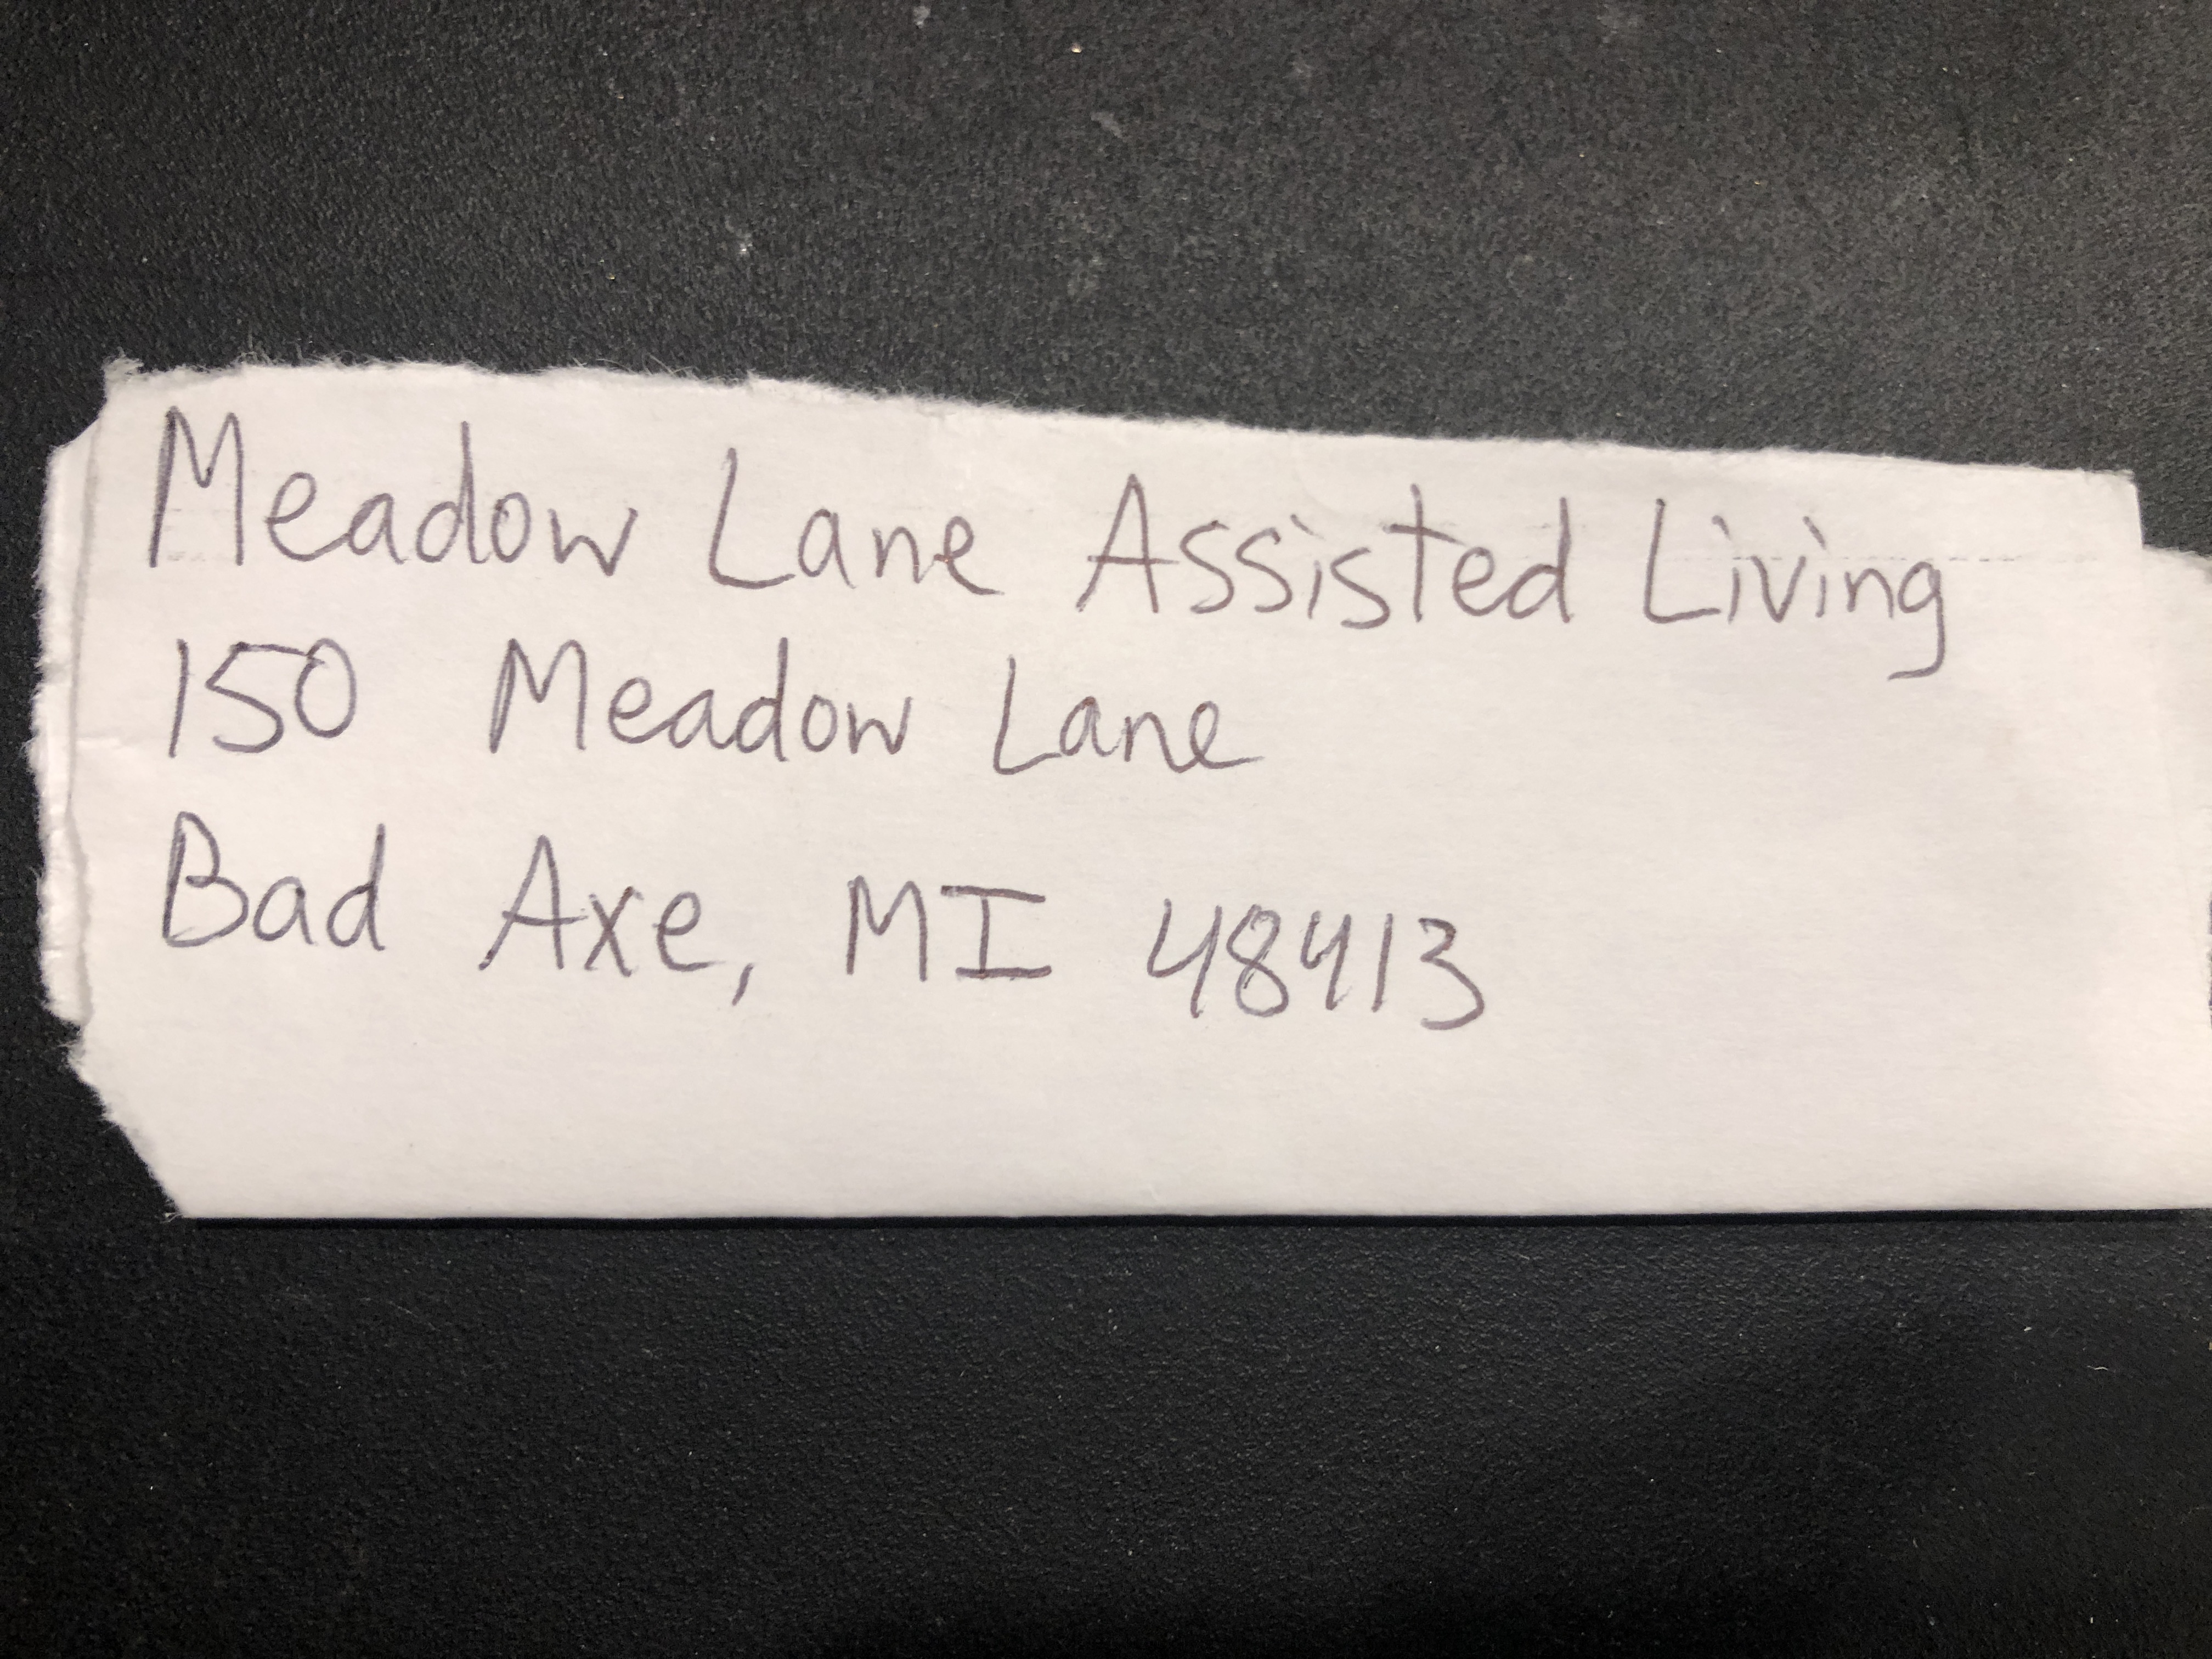 Meadow Lane Assisted Living
150 Meadow Lane
Bad Axe, MI 48413